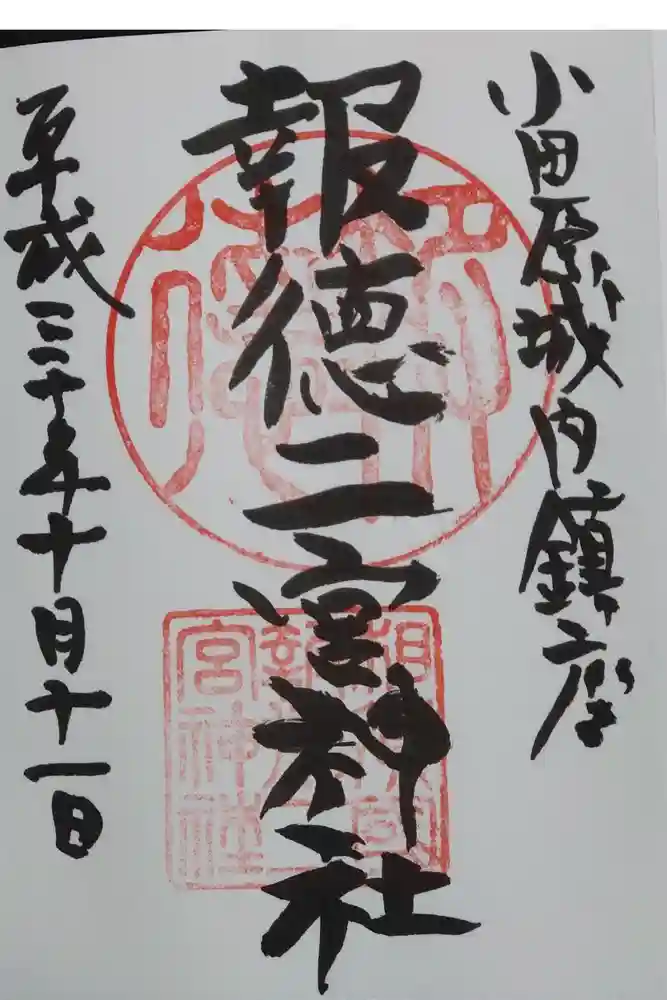 小田原城内鎮座
報徳二宮神社
平成三十年十月十一日
相模國
報徳二
宮神社